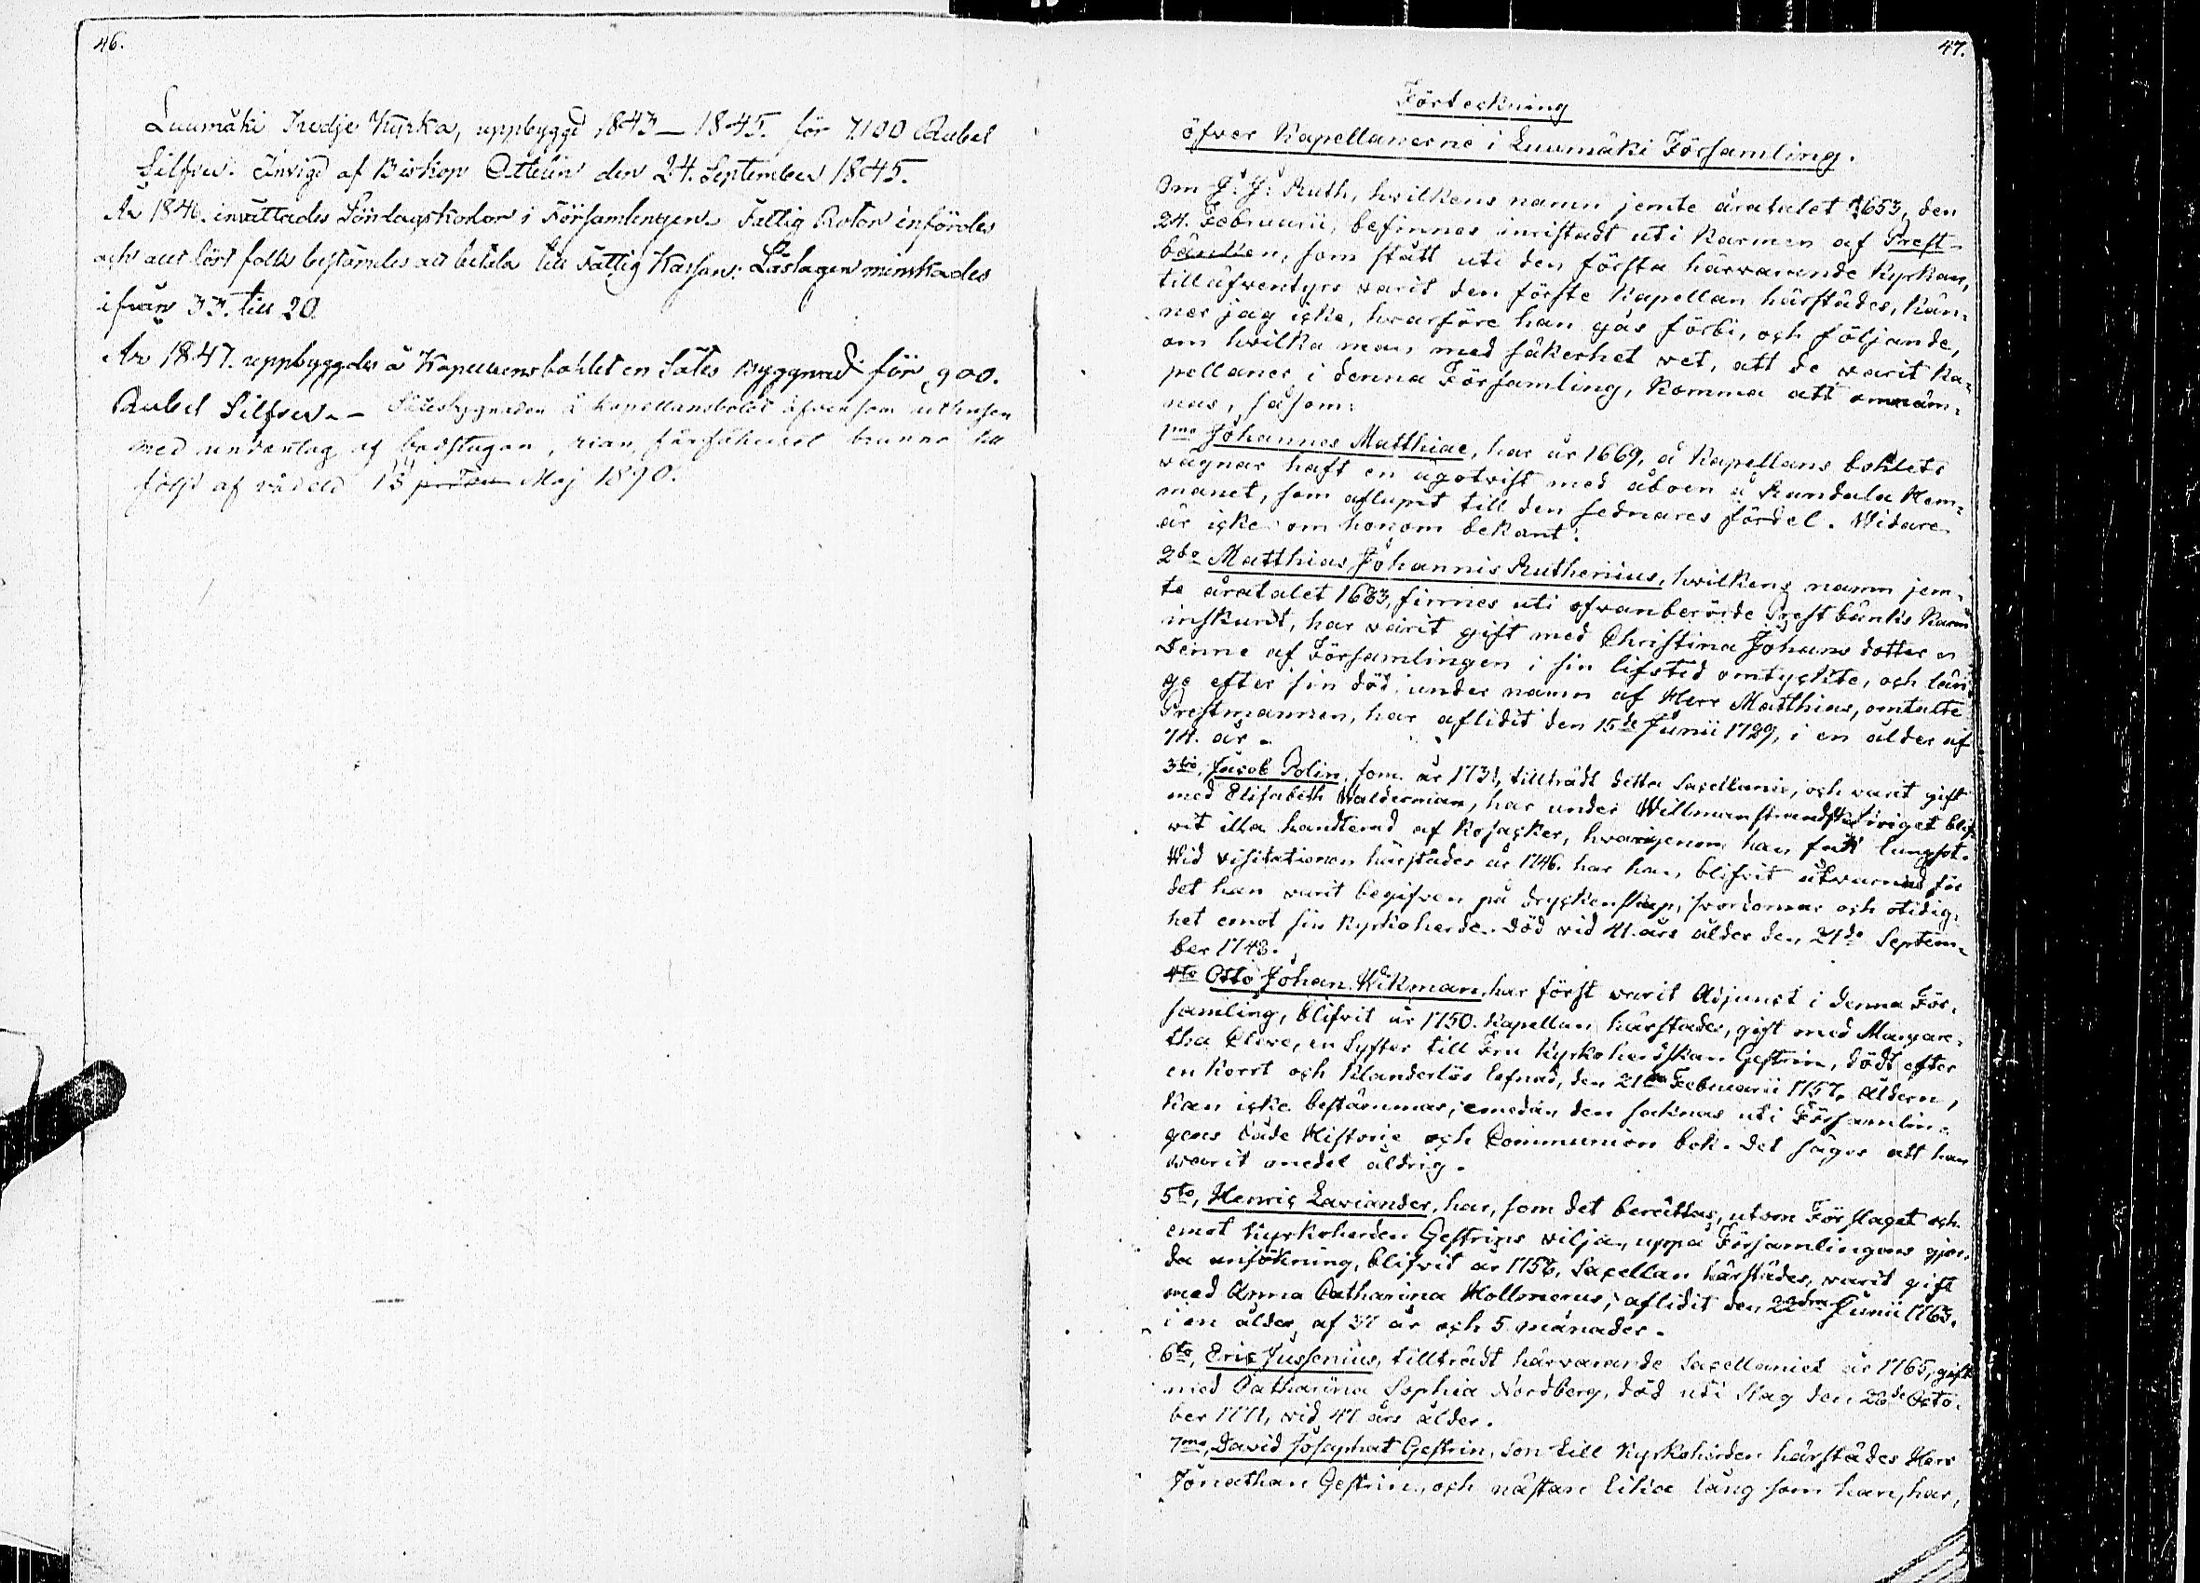 46.
Luumäki Tredje Kyrka, uppbyggd 1843–1845. för 7100 Rubel
Silfver. Invigd af Biskop Ottelin den 24. September 1845.
År 1846. inrättades Söndagskolor i Församlingen. Fattig Rotar infördes
och allt löst folk bestämdes att betala till Fattig Kassan. Läslagen minskades
ifrån 33. till 20.
År 1847. uppbyggdes å Kapellansbohlet en Sätes Byggnad för 900.
Rubel Silfver. – Sätesbygnaden å kapellansbolet äfvensom uthusen
med undantag af badstugan, rian, fårhuset brunno till
följd af vådeld 13 Maj 1890.
47.
Förteckning
öfver Kapellanerne i Luumäki Församling.
Om J: J: Ruth, hvilkens namn jemte åratalet 1653, den
24. Februarii, befinnes inristadt uti karmen af Prest-
bänken, som stått uti den första härvarande Kyrkan,
tilläfventyrs varit den förste Kapellan härstädes, kän-
ner jag icke, hvarföre han gås förbi, och följande,
om hvilka man med säkerhet vet, att de varit Ka-
pellaner i denna Församling, komma att omnäm-
nas, såsom:
1mo Johannes Matthiae, har år 1669, å Kapellans bohlets
vägnar haft en ägotvist med åboen å Randala Hem-
manet, som aflupit till den sednares fördel. Widare
är icke om honom bekant.
2do Matthias Johannis Ruthenius, hvilkens namn jem-
te åratalet 1683, finnes uti ofvanberörde Prestbänks Karm
inskurit, har varit gift med Christina Johans dotter
Denne af Församlingen i sin lifstid omtyckte, och län-
ge efter sin död under namn af Herr Matthias, omtalte
Prestmannen, har aflidit den 15de Junii 1729, i en ålder af
74. år.
3tio, Jacob Polin, som år 1731, tillträdt detta Sacellanie, och varit gift
med Elisabeth Walderman, har under Willmanstrandska Kriget blif-
vit illa handterad af Kosacker, hvarigenom han fått lungsot.
Wid visitationen härstädes år 1746. har han blifvit åtvarnad för
det han varit begifven på dryckenskap, svordomar och otidig-
het emot sin Kyrkoherde. Död vid 41. års ålder den 21de Septem-
ber 1748.
4to Otto Johan Wikman, har först varit Adjunct i denna För-
samling, blifvit år 1750. Kapellan härstädes, gift med Margare-
tha Cleve, en Syster till Fru Kyrkoherdskan Gestrin, dödt efter
en kort och klanderlös lefnad, den 21 Februarii 1757. Åldern,
kan icke bestämmas, emedan den saknas uti Församlin-
gens både Historie och Communion bok. Det säges att han
varit medel åldrig.
5to, Henric Laviander, har, som det berättas, utom Förslaget och
emot Kyrkoherden Gestrins vilja, uppå Församlingens gjor-
da ansökning, blifvit år 1758, Sacellan härstädes, varit gift
med Anna Catharina Hollmerus; aflidit den 22dra Junii 1763.
i en ålder af 37 år och 5 månader.
6to, Eric Jussenius, tillträdt härvarande Sacellaniet år 1765, gift
med Catharina Sophia Nordberg, död uti slag den 26de Octo-
ber 1771, vid 47 års ålder.
7mo, David Josaphat Gestrin, Son till Kyrkoherden härstädes Herr
Jonathan Gestrin, och nästan lika lång som han, har,